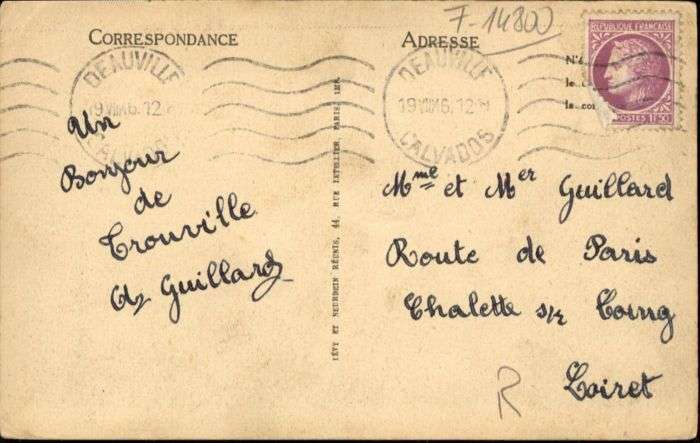 F-14800
CORRESPONDANCE
ADRESSE
DEAUVILLE
CALVADOS
DEAUVILLE
19 VIII 46. 12 H
CALVADOS
RÉPUBLIQUE FRANÇAISE
POSTES 1F50
N'é
le
la co
Un
Bonjour
de
Trouville
Guillard
LÉVY ET NEURDEIN RÉUNIS, 44, RUE LETELLIER, PARIS, IMP.
Mme et Mer Guillard
Route de Paris
Chalette s/r Loing
Loiret
R